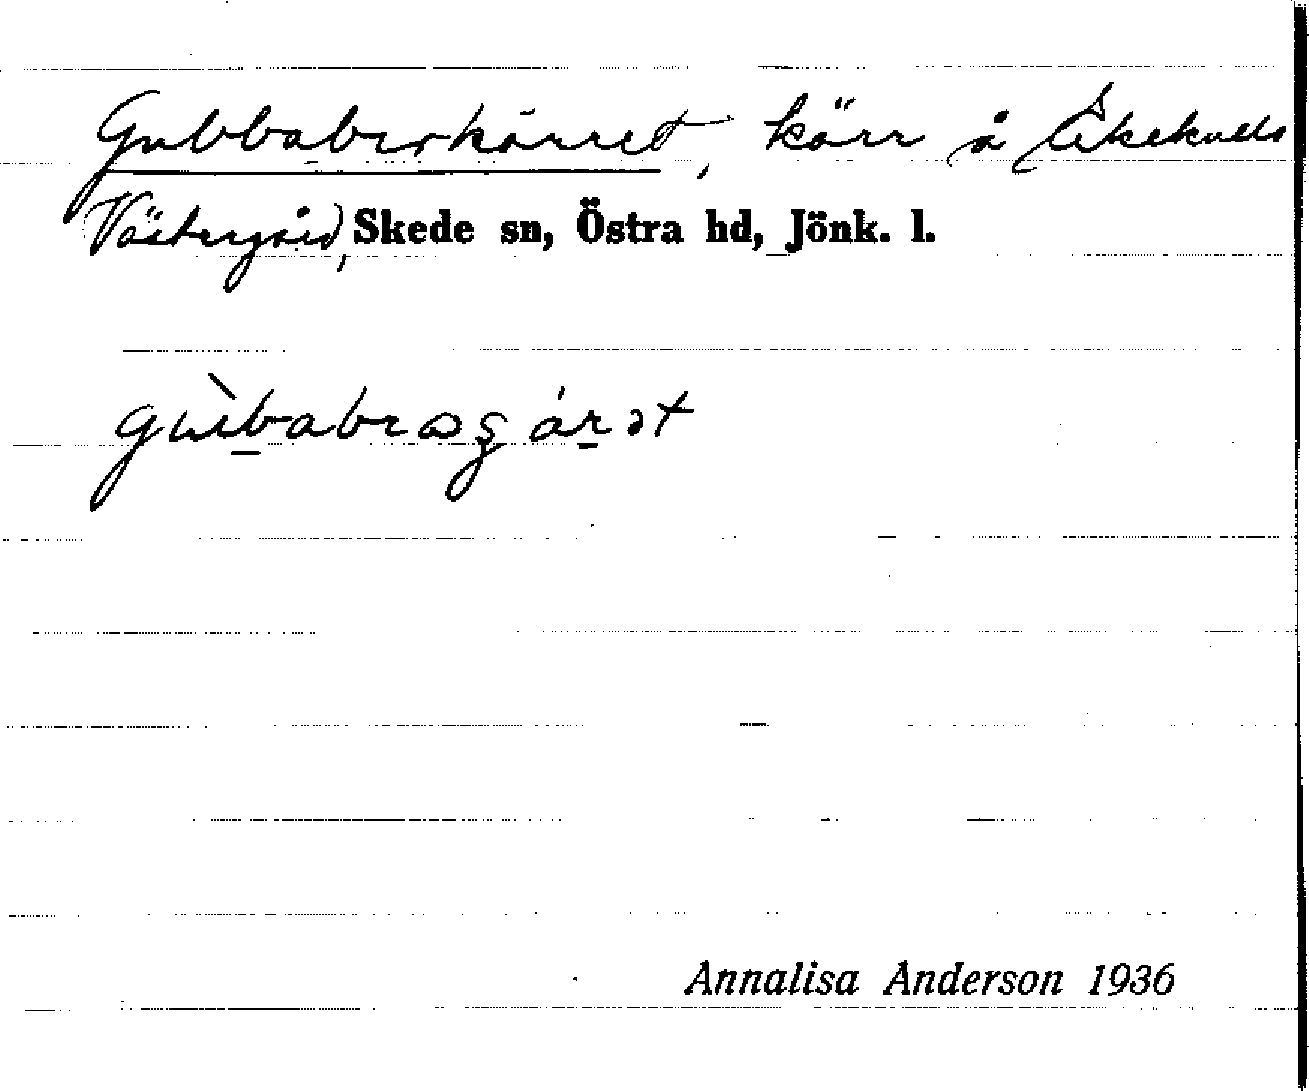 Gubbabrokärret, kärr å Åkekulls
Västergård, Skede sn, Östra hd, Jönk. l.
Annalisa Anderson 1936